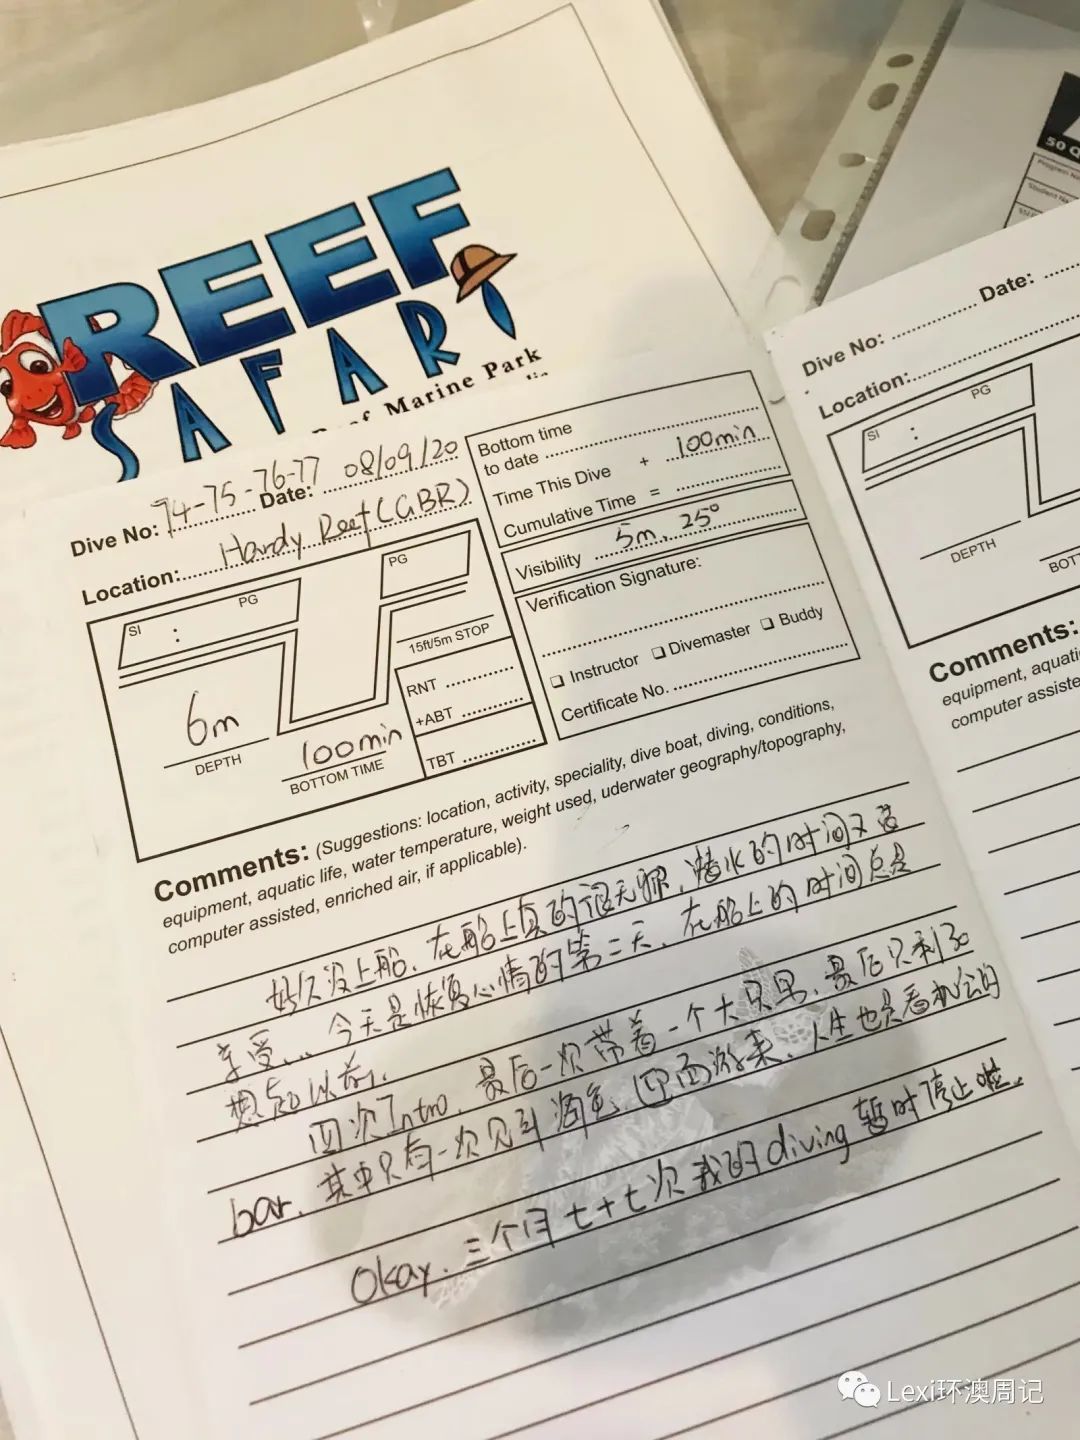 REEF
SAFARI
Reef Marine Park
50 Q
Program N
Student N
Dive No: 74-75-76-77 Date: 08/09/20
Location: Hardy Reef (GBR)
SI : PG
PG
15ft/5m STOP
6m
DEPTH
100min
BOTTOM TIME
RNT
+ABT
TBT
Bottom time
to date
Time This Dive + 100min
Cumulative Time =
Visibility 5m, 25°
Verification Signature:
❑ Instructor ❑ Divemaster ❑ Buddy
Certificate No.
Comments: (Suggestions: location, activity, speciality, dive boat, diving, conditions,
equipment, aquatic life, water temperature, weight used, uderwater geography/topography,
computer assisted, enriched air, if applicable).
好久没上船，在船上真的很无聊，潜水的时间又
享受... 今天是恢复心情的第二天，在船上的时间总是
想起以前，
四次Intro，最后一次带着一个大只男，最后只剩30
bar，其中只有一次见到 四面游来，人生也只看
Okay，三个月七十七次我的diving暂时停止啦。
Dive No: Date:
Location:
SI : PG
DEPTH
BOT
Comments:
equipment, aquati
computer assiste
Lexi环澳周记